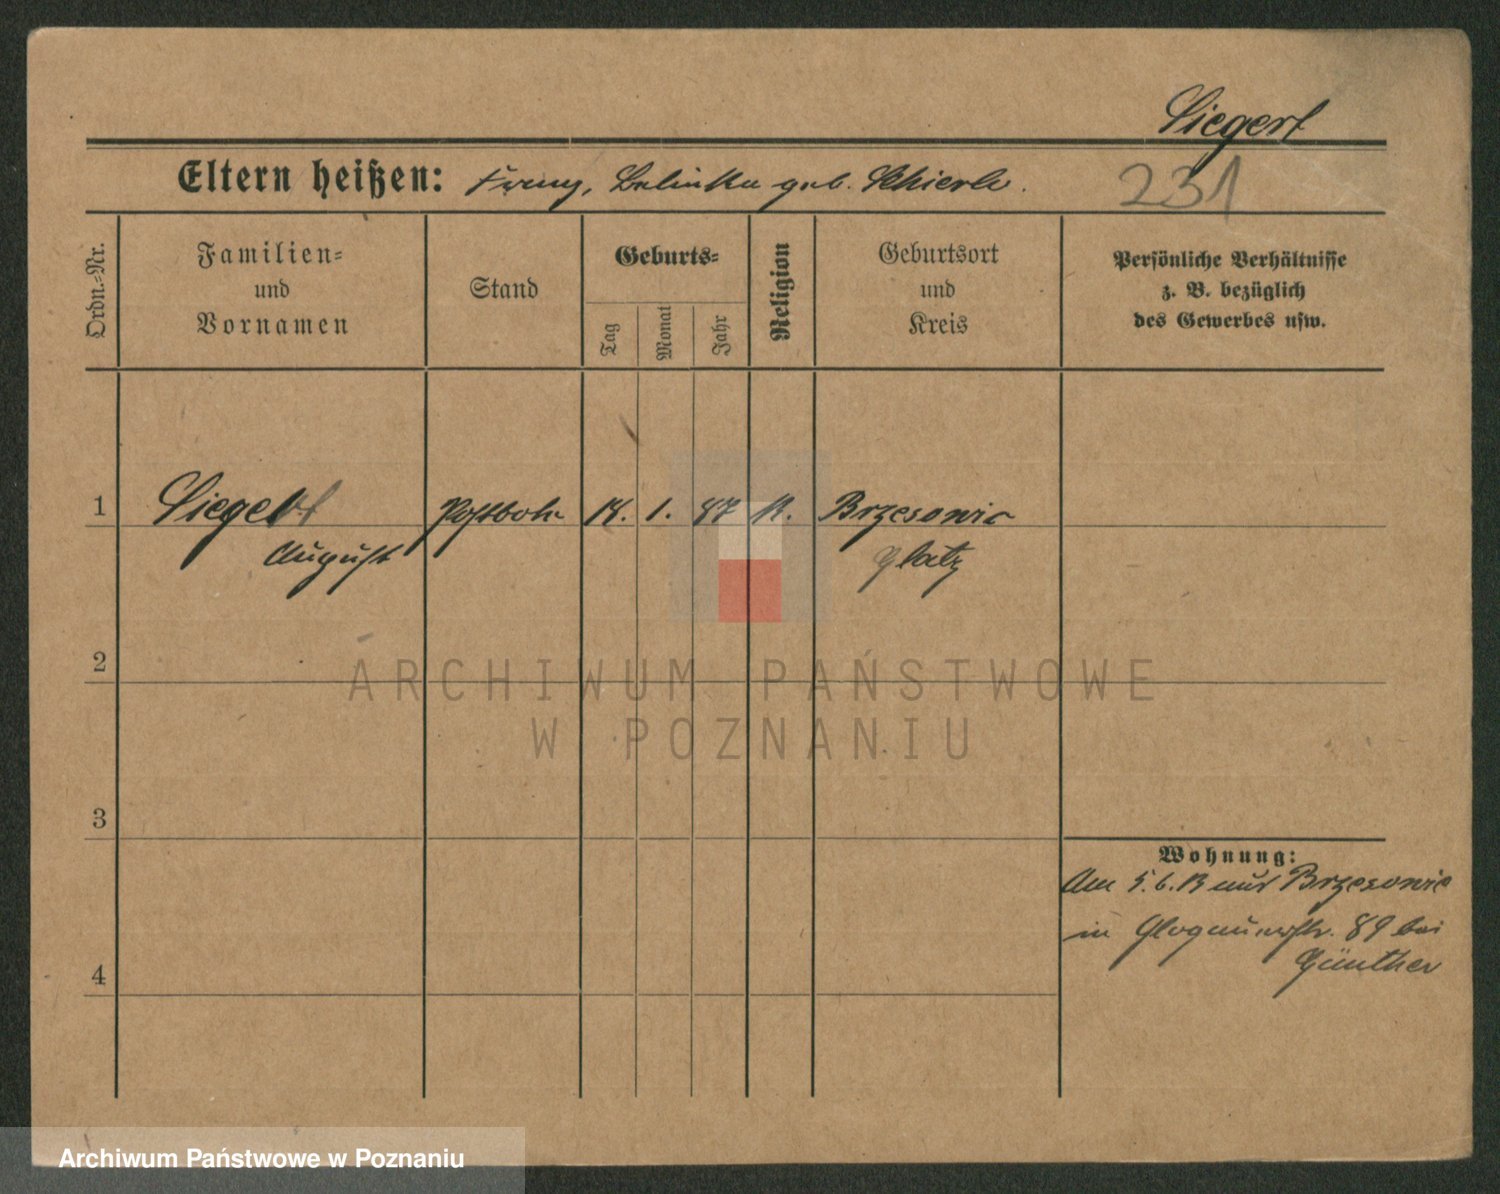 Siegert
Eltern heißen: Franz, geb. Schierle.
231
Ordn.=Nr.
Familien=
und
Vornamen
Stand
Geburts=
Tag
Monat
Jahr
Religion
Geburtsort
und
Kreis
Persönliche Verhältnisse
z. B. bezüglich
des Gewerbes usw.
1 Siegert Postbote 18. 1. 87 K. Brzesowie
August Glatz
2
3
4
Wohnung:
Am 5. 6. 13 aus Brzesowie
in Glogauerstr. 89 bei
Günther
ARCHIWUM PAŃSTWOWE
W POZNANIU
Archiwum Państwowe w Poznaniu